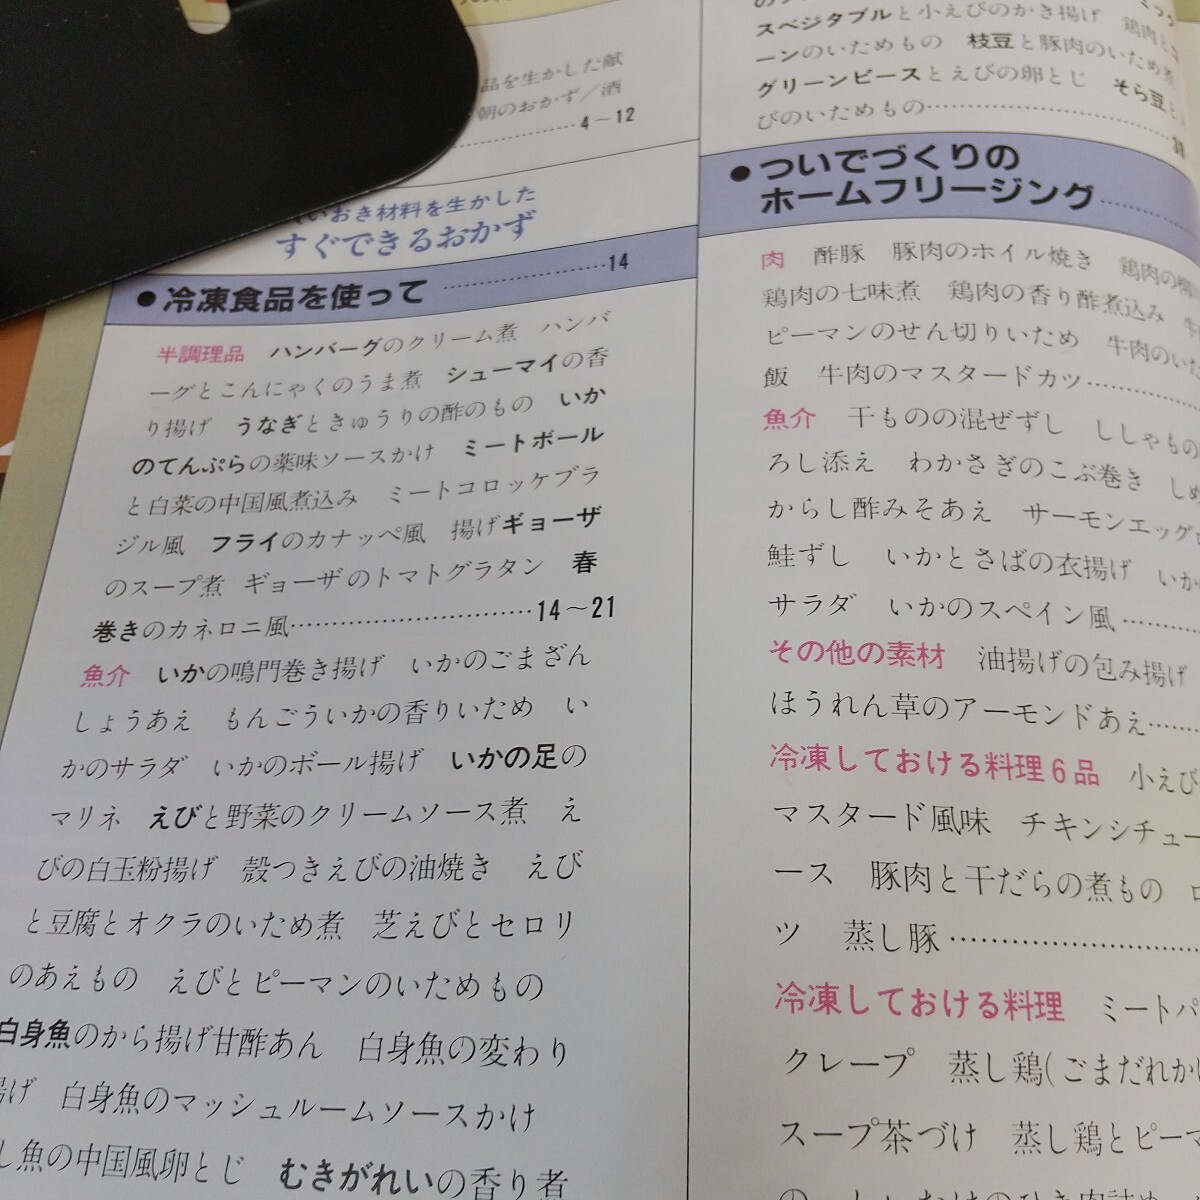 品を生かした献
朝のおかず／酒
4～12
おき材料を生かした
すぐできるおかず
●冷凍食品を使って…………14
半調理品 ハンバーグのクリーム煮 ハンバ
ーグとこんにゃくのうま煮 シューマイの香
り揚げ うなぎときゅうりの酢のもの いか
のてんぷらの薬味ソースかけ ミートボール
と白菜の中国風煮込み ミートコロッケブラ
ジル風 フライのカナッペ風 揚げギョーザ
のスープ煮 ギョーザのトマトグラタン 春
巻きのカネロニ風…………14～21
魚介 いかの鳴門巻き揚げ いかのごまざん
しょうあえ もんごういかの香りいため い
かのサラダ いかのボール揚げ いかの足の
マリネ えびと野菜のクリームソース煮 え
びの白玉粉揚げ 殻つきえびの油焼き えび
と豆腐とオクラのいため煮 芝えびとセロリ
のあえもの えびとピーマンのいためもの
白身魚のから揚げ甘酢あん 白身魚の変わり
揚げ 白身魚のマッシュルームソースかけ
し魚の中国風卵とじ むきがれいの香り煮
スベジタブルと小えびのかき揚げ 鶏肉とコ
ーンのいためもの 枝豆と豚肉のいため煮
グリーンピースとえびの卵とじ そら豆と
びのいためもの…………
●ついでづくりの
ホームフリージング…………
肉 酢豚 豚肉のホイル焼き 鶏肉の
鶏肉の七味煮 鶏肉の香り酢煮込み
ピーマンのせん切りいため 牛肉のいた
飯 牛肉のマスタードカツ…………
魚介 干ものの混ぜずし ししゃもの
ろし添え わかさぎのこぶ巻き しめ
からし酢みそあえ サーモンエッグ
鮭ずし いかとさばの衣揚げ いか
サラダ いかのスペイン風…………
その他の素材 油揚げの包み揚げ
ほうれん草のアーモンドあえ……
冷凍しておける料理6品 小えび
マスタード風味 チキンシチュー
ース 豚肉と干だらの煮もの ロ
ツ 蒸し豚…………
冷凍しておける料理 ミートパ
クレープ 蒸し鶏(ごまだれか
スープ茶づけ 蒸し鶏とピーマ